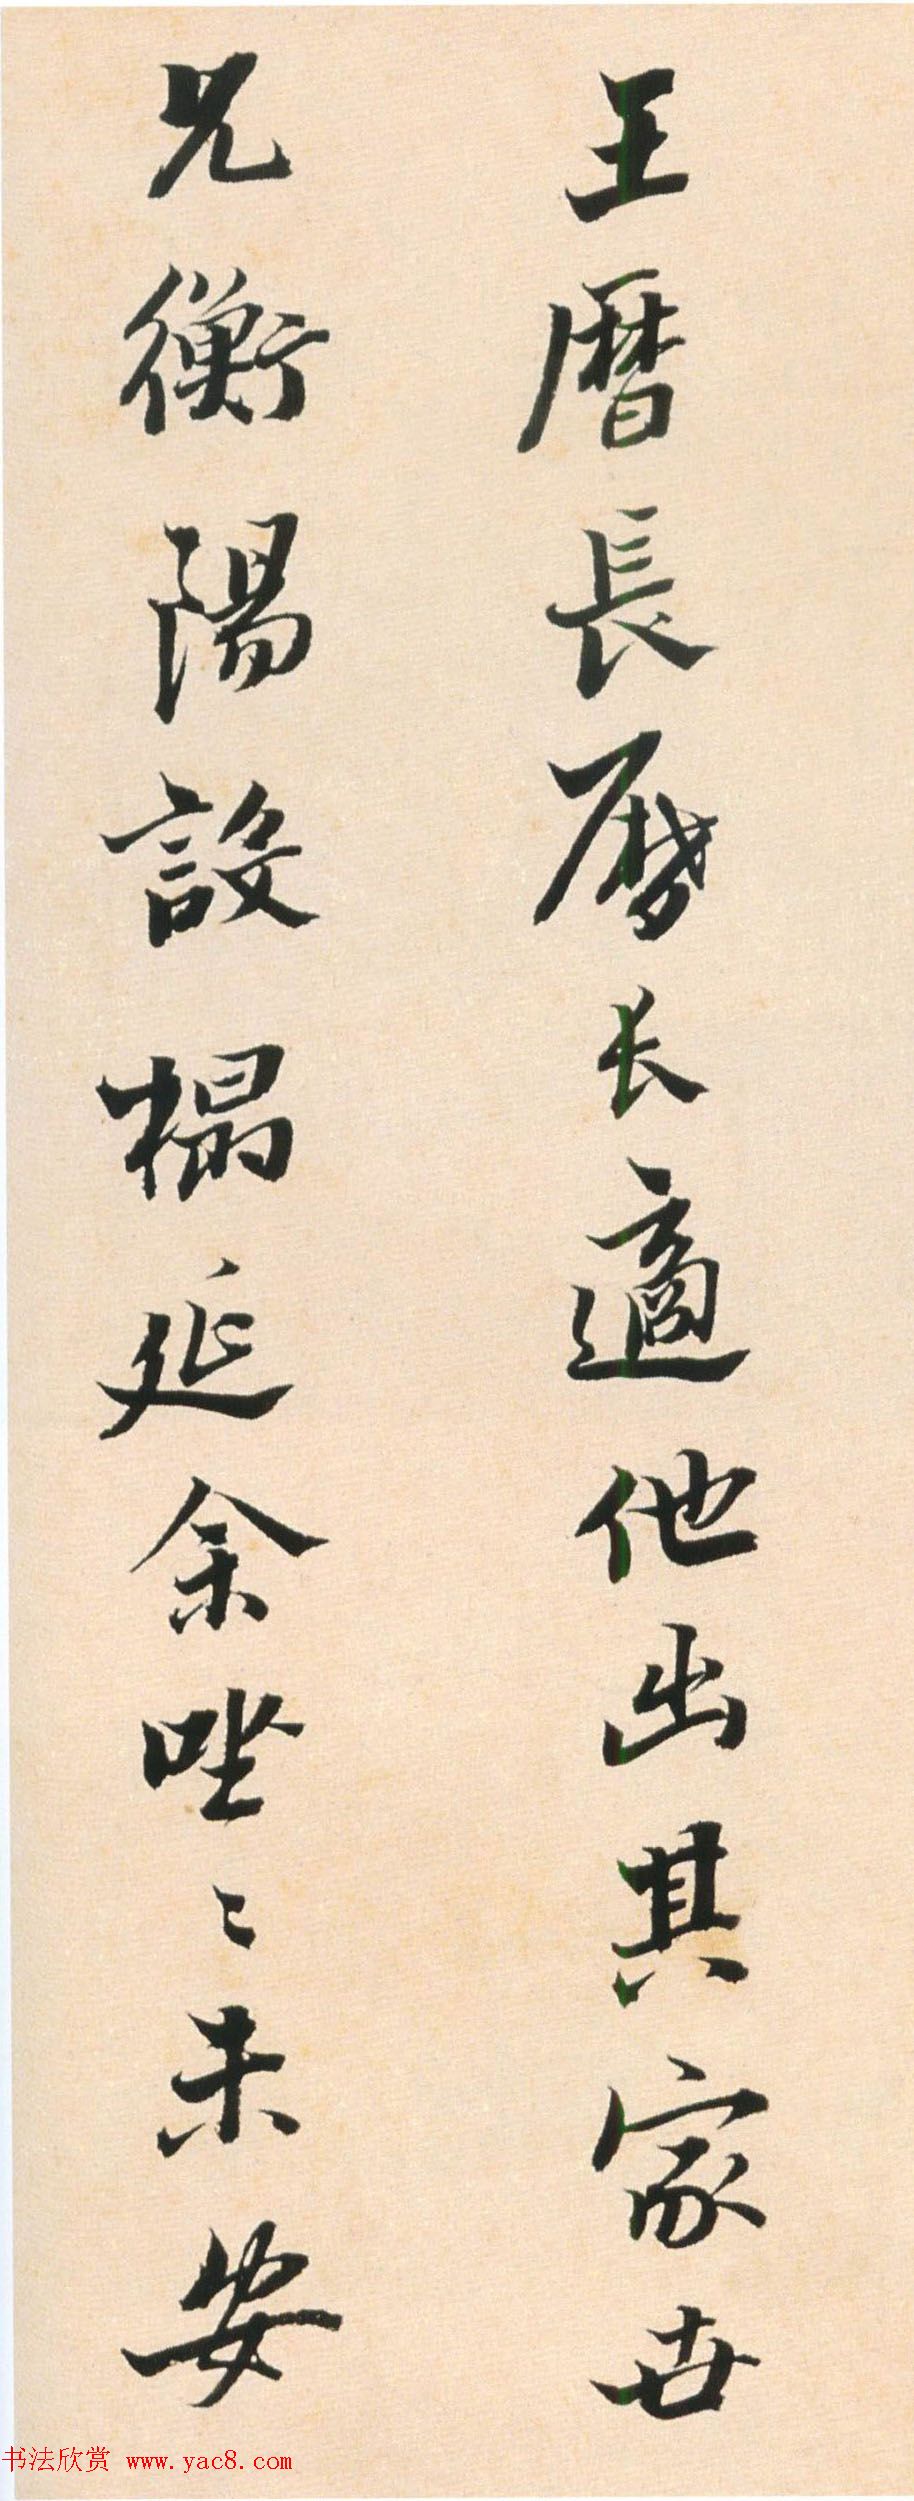 王曆長曆長適他出其家世
兄衡陽設榻延余唑〻未安
书法欣赏 www.yac8.com